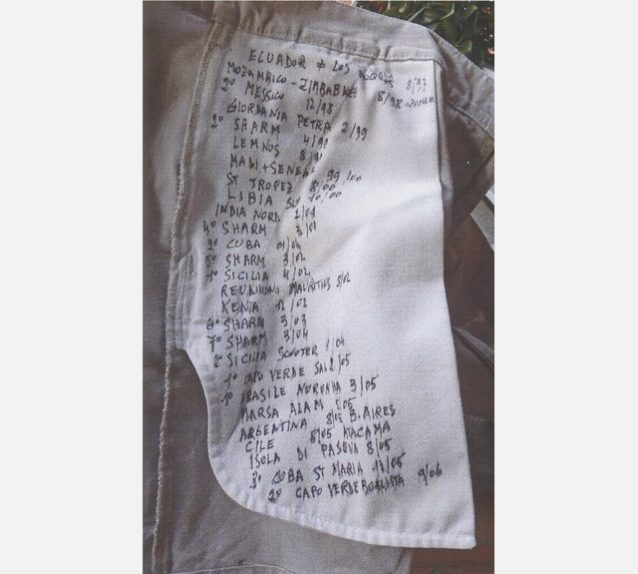 ECUADOR + LOS ROQUES 8/97
MOZAMBICO - ZIMBABWE 8/98
2° MESSICO 12/98
GIORDANIA PETRA 2/99
2° SHARM 4/99
LEMNOS 8/99
MALI + SENEGAL 99/00
ST TROPEZ 8/00
LIBIA SUD 10/00
INDIA NORD 1/01
4° SHARM 3/01
2° CUBA 01/02
5° SHARM 3/02
1° SICILIA 4/02
REUNION MAURITIUS 8/02
KENIA 12/02
6° SHARM 3/03
7° SHARM 3/04
2° SICILIA SCOOTER 8/04
1° CAPO VERDE SAL 2/05
1° BRASILE NORONHA 3/05
MARSA ALAM 5/05
ARGENTINA 8/05 B. AIRES
CILE 8/05 ATACAMA
ISOLA DI PASQUA 8/05
3° CUBA ST MARIA 12/05
2° CAPO VERDE BOAVISTA 9/06